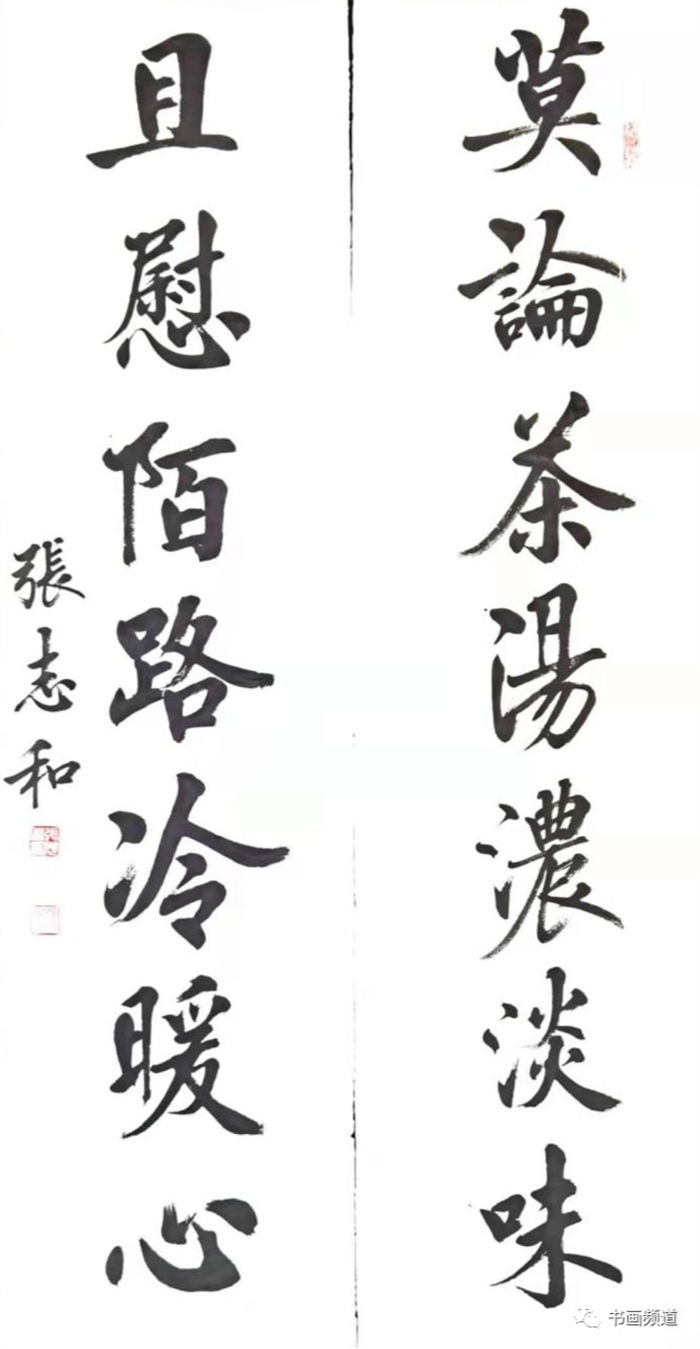 莫論茶湯濃淡味
且慰陌路冷暖心
張志和
书画频道